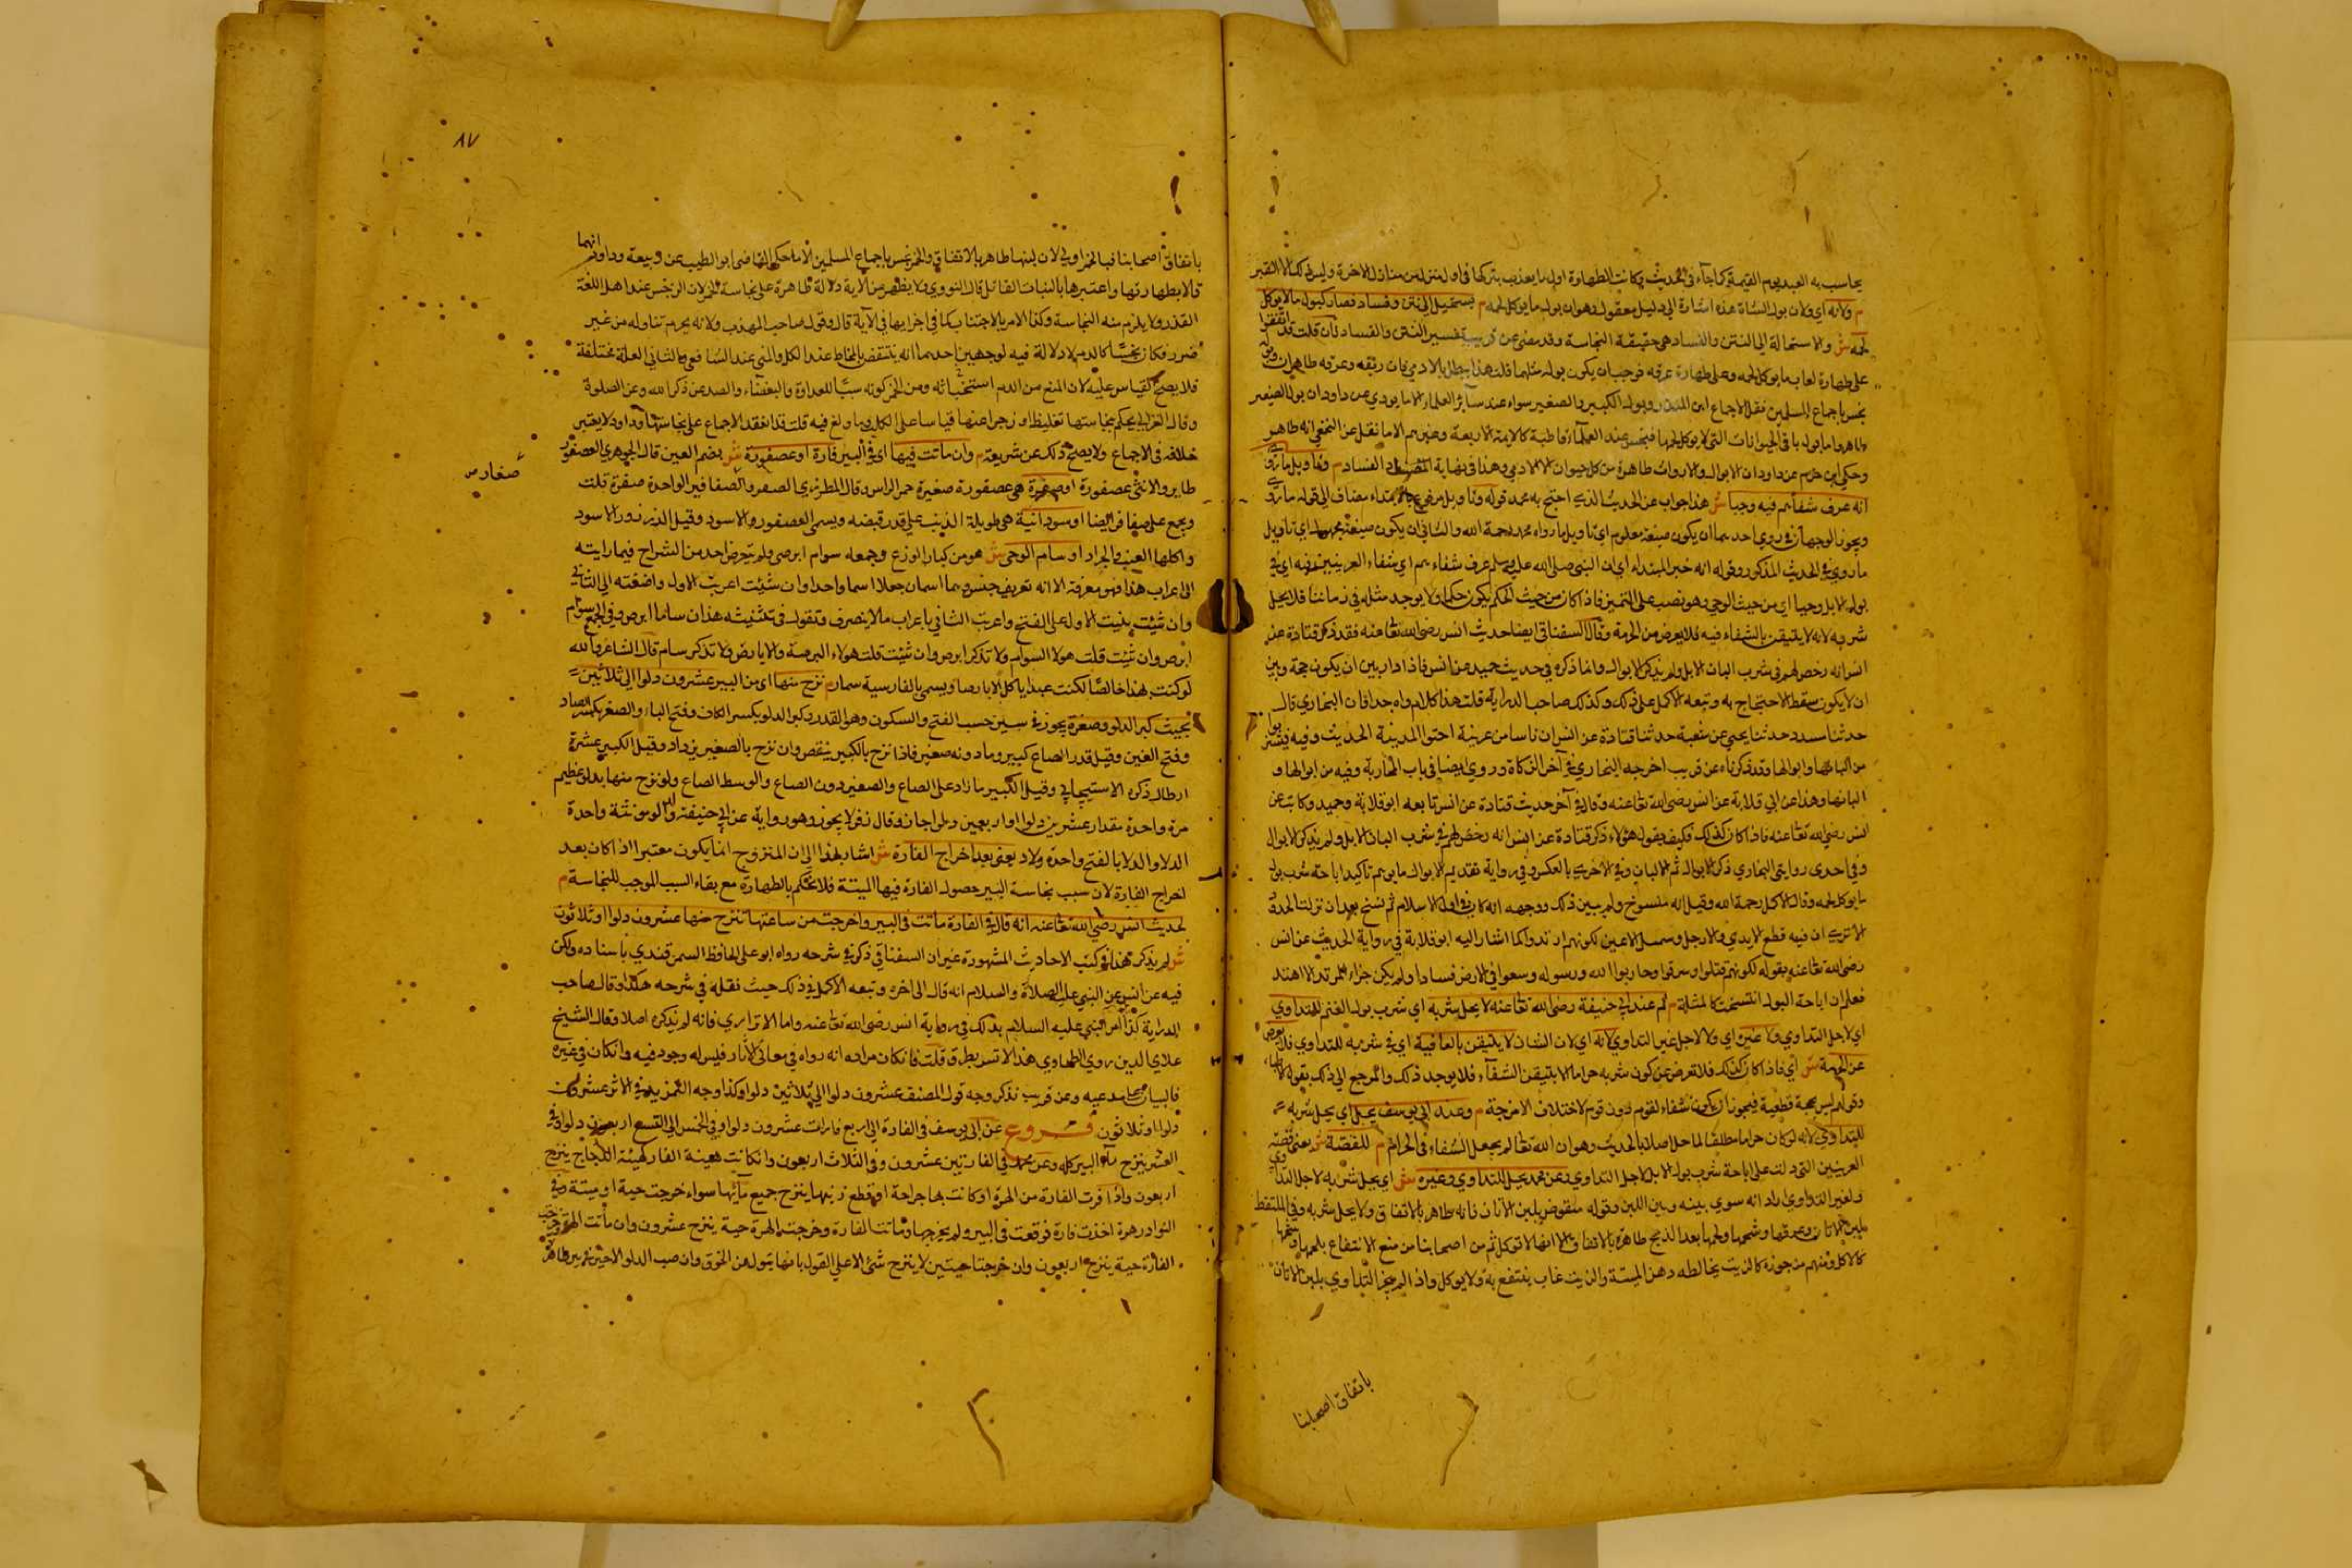 يحاسب به العبد يوم القيمة كما جاء في الحديث وكانت الطهارة اول ما يعذب بتركها في اول منزل من منازل الاخرة وليس ذلك الا القبر
م ولانه اي ولان بول الشاة هذه اشارة الي دليل معقول وهو ان بول ما يوكل لحمه م يستحيل الي نتن وفساد فصار كبول ما لا يوكل
لحمه ش والاستحالة الي النتن والفساد هي حقيقة النجاسة وقد مضي عن قريب تفسير النتن والفساد فان قلت قد اتفقوا
علي طهارة لعاب ما يوكل لحمه وعلي طهارة عرقه فوجب ان يكون بوله مثلهما قلت هذا يبطل بالادمي فان ريقه وعرقه طاهران وبوله
نجس باجماع المسلمين نقل الاجماع ابن المنذر وبول الكبير والصغير سواء عند سائر العلماء الا ما يودي عن داود ان بول الصغير
طاهر واما بول باقي الحيوانات التي لا يوكل لحمها فنجس عند العلماء قاطبة كالايمة الاربعة وغيرهم الا ما نقل عن النخعي انه طاهر
وحكي ابن حزم عن داود ان الابوال والارواث طاهرة من كل حيوان الا الادمي وهذا في نهاية الفساد م وتاويل ما روي
انه عرف شفاءهم فيه وحيا ش هذا جواب عن الحديث الذي احتج به محمد قوله وتاويل مرفوع بالابتداء مضاف الي قوله ما روي
ويجوز الوجهان في روي احدهما ان يكون صيغة معلوم اي تاويل ما رواه محمد رحمة الله والثاني ان يكون صيغة مجهول اي تاويل
ما روي في الحديث المذكور وقوله انه خبر المبتداء اي ان النبي صلي الله عليه وسلم عرف شفاءهم اي شفاء العرينيين فيه اي في
بول الابل وحيا اي من حيث الوحي وهو نصب علي التميز فاذا كان من حيث الحكم يكون حكما ولا يوجد مثله في زماننا فلا يحل
شربه لانه لا يتيقن بالشفاء فيه فلا يعرض عن الحرمة وقال السغناقي ايضا حديث انس رضي الله تعا عنه فقد ذكر قتادة عن
انس انه رخص لهم في شرب البان الابل ولم يذكر الابوال وانما ذكره في حديث حميد عن انس فاذا دار بين ان يكون حجة وبين
ان لا يكون سقط الاحتجاج به وتبعه الاكمل علي ذلك وكذلك صاحب الدراية قلت هذا كلام واه جدا فان البخاري قال
حدثنا مسدد حدثنا يحيي عن شعبة حدثنا قتادة عن انس ان ناسا من عرينة اجتووا المدينة الحديث وفيه فيشربوا
من البانها وابوالها وقد ذكرناه عن قريب اخرجه البخاري في آخر الزكاة وروي ايضا في باب المحاربة وفيه من ابوالها و
البانها وهذا عن ابي قلابة عن انس رضي الله تعا عنه وقال في آخر حديث قتادة عن انس تابعه ابو قلابة وحميد وثابت عن
انس رضي الله تعا عنه فاذا كان كذلك فكيف يقول هؤلاء ذكر قتادة عن انس انه رخص لهم في شرب البان الابل ولم يذكر الابوال
وفي احدي روايتي البخاري ذكر الابوال ثم الالبان وفي الاخري بالعكس وفي رواية تقديم الابوال ما يوهم تاكيدا باحة شرب بول
ما يوكل لحمه وقال الاكمل رحمة الله وقيل انه منسوخ ولم يبين ذلك ووجهه انه كان في اول الاسلام ثم نسخ بعد ان نزلت الحدود
الا تري ان فيه قطع الايدي والارجل وسمل الاعين لكونهم ارتدوا كما اشار اليه ابو قلابة في رواية الحديث عن انس
رضي الله تعا عنه بقوله لكونهم قتلوا وسرقوا وحاربوا الله ورسوله وسعوا في الارض فسادا ولم يكن جزاء المرتد الا هذا
فعلم ان اباحة البول انتسخت كالمثلة م ثم عند ابي حنيفة رضي الله تعا عنه لا يحل شربه اي شرب بول الغنم للتداوي
اي لاجل التداوي ولا غيره اي ولا لاجل غير التداوي لانه اي لان الشان لا يتيقن بالعافية اي في شربه للتداوي فلا يعرض
عن الحرمة ش اي فاذا كان كذلك فلا تعرض عن كون شربه حراما الا بتيقن الشفاء فلا يوجد ذلك والمرجع الي ذلك بقول الاطباء
وقولهم ليس بحجة قطعية فيجوز ان يكون شفاء لقوم دون قوم لاختلاف الامزجة م وعند ابي يوسف يحل اي يحل شربه
للتداوي لانه لو كان حراما مطلقا لما حل اصلا بالحديث وهو ان الله تعا لم يجعل الشفاء في الحرام م للقصة ش يعني قصة
العرينيين التي دلت علي اباحة شرب بول الابل لاجل التداوي وعن محمد يحل للتداوي وغيره ش اي يحل شربه لاجل التداوي
ولغير التداوي
كالاكل ومنهم من جوزه كالزيت يخالطه دهن الميتة والزيت غالب ينتفع به ولا يوكل واذا لم يجز التداوي بلبن الاتان
باتفاق اصحابنا
٨٧
باتفاق اصحابنا فبالخمر اولي لان لبنها طاهر بالاتفاق والخمر نجس باجماع المسلمين الا ما حكي القاضي ابو الطيب عن ربيعة وداود انهما
قالا بطهارتها واعتبرها بالنبات القاتل قال النووي ولا يظهر من الاية دلالة ظاهرة علي نجاسة الخمر لان الرجس عند اهل اللغة
القذر ولا يلزم منه النجاسة وكذا الامر بالاجتناب كما في اخواتها في الآية قال وقول صاحب المهذب ولانه يحرم تناوله من غير
ضرر فكان نجسا كالدم لا دلالة فيه لوجهين احدهما انه ينتقض بالمخاط عند الكل والمني عند الشافعي والثاني العلة مختلفة
فلا يصح القياس عليه لان المنع من الدم استخباثه ومن الخمر كونه سببا للعداوة والبغضاء والصد عن ذكر الله وعن الصلوة
وقال الغزالي يحكم بنجاستها تغليظا وزجرا عنها قياسا علي الكلب وما ولغ فيه قلت قد انعقد الاجماع علي نجاستها وداود لا يعتبر
خلافه في الاجماع ولا يصح ذلك عن شريعة م وان ماتت فيها اي في البير فارة او عصفورة ش بضم العين قال الجوهري العصفور
طاير والانثي عصفورة او صعوة هي عصفورة صغيرة حمر الراس وقال المطرزي الصعو والصعافير الواحدة صعوة قلت
صغار س
ويجمع علي صعاء ايضا او سودانية هي طويلة الذنب علي قدر قبضه ويسمي العصفور الاسود وقيل الزرزور الاسود
واكلها العنب والجراد او سام الوحي ش هو من كبار الوزع وجمعه سوام ابرص ولم يتعرض احد من الشراح فيما رايته
الي اعراب هذا فهو معرفة الا انه تعريف جنس وهما اسمان جعلا اسما واحدا وان شئت اعربت الاول واضفته الي الثاني
وان شئت بنيت الاول علي الفتح واعربت الثاني باعراب ما لا ينصرف وتقول في تثنيته هذان ساما ابرص وفي الجمع سوام
ابرص وان شئت قلت هولاء السوام ولا تذكر ابرص وان شئت قلت هولاء البرصة والابارص ولا تذكر سام قال الشاعر والله
لو كنت لهذا خالصا لكنت عبدا ياكل الابارصا ويسمي بالفارسية سمار م نزح منها اي من البير عشرون دلوا الي ثلاثين
بحسب كبر الدلو وصغره يجوز في سين حسب الفتح والسكون وهو القدر وكبر الدلو بكسر الكاف وفتح الباء والصغر بكسر الصاد
وفتح الغين وقيل قدر الصاع كبير وما دونه صغير فاذا نزح بالكبير ينقص وان نزح بالصغير يزداد وقيل الكبير عشرة
ارطال ذكره الاسبيجابي وقيل الكبير ما زاد علي الصاع والصغير دون الصاع والوسط الصاع ولو نزح منها بدلو عظيم
مرة واحدة مقدار عشرين دلوا او اربعين دلوا جاز وقال زفر لا يجوز وهو رواية عن ابي حنيفة والدلو مونثة واحدة
الدلاء والدلا بالفتح واحدة دلاة يعني بعد اخراج الفارة ش اشار بهذا الي ان المنزوح انما يكون معتبرا اذا كان بعد
اخراج الفارة لان سبب نجاسة البير حصول الفارة فيها الميتة فلا يحكم بالطهارة مع بقاء السبب الموجب للنجاسة م
لحديث انس رضي الله تعا عنه انه قال في الفارة ماتت في البير واخرجت من ساعتها تنزح منها عشرون دلوا او ثلاثون
ش لم يذكر هذا في كتب الاحاديث المشهورة غير ان السغناقي ذكر في شرحه رواه ابو علي الحافظ السمرقندي باسناده ولكن
فيه عن انس عن النبي عليه الصلاة والسلام انه قال الي اخره وتبعه الاكمل في ذلك حيث نقله في شرحه هكذا وقال صاحب
الدراية كذا امر النبي عليه السلام بذلك في رواية انس رضي الله تعا عنه واما الاترازي فانه لم يذكره اصلا وقال الشيخ
علاي الدين روي الطحاوي هذا الاثر بطرق قلت فان كان مراده انه رواه في معاني الآثار فليس له وجود فيه وان كان في غيره
فالبيان علي مدعيه وعن قريب نذكر وجه قول المصنف عشرون دلوا الي ثلاثين دلوا وكذا وجه التمييز في الاثر عشرون
دلوا او ثلاثون فروع عن ابي يوسف في الفارة الي اربع فارات عشرون دلوا وفي الخمس الي التسع اربعون دلوا وفي
العشر ينزح ماء البير كله وعن محمد في الفارتين عشرون وفي الثلاث اربعون وان كانت هيئة الفار كهيئة الدجاج ينزح
اربعون واذا فرت الفارة من الهرة او كانت بها جراحة او قطع ذنبها ينزح جميع مائها سواء خرجت حية او ميتة وفي
النوادر هرة اخذت فارة فوقعت في البير ولم يجرحها وماتت الفارة وخرجت الهرة حية ينزح عشرون وان ماتت الهرة وخرجت
الفارة حية ينزح اربعون وان خرجتا حيتين لا ينزح شئ الا علي القول بانها تبول من الخوف وان صب الدلو الاخير في بير طاهر